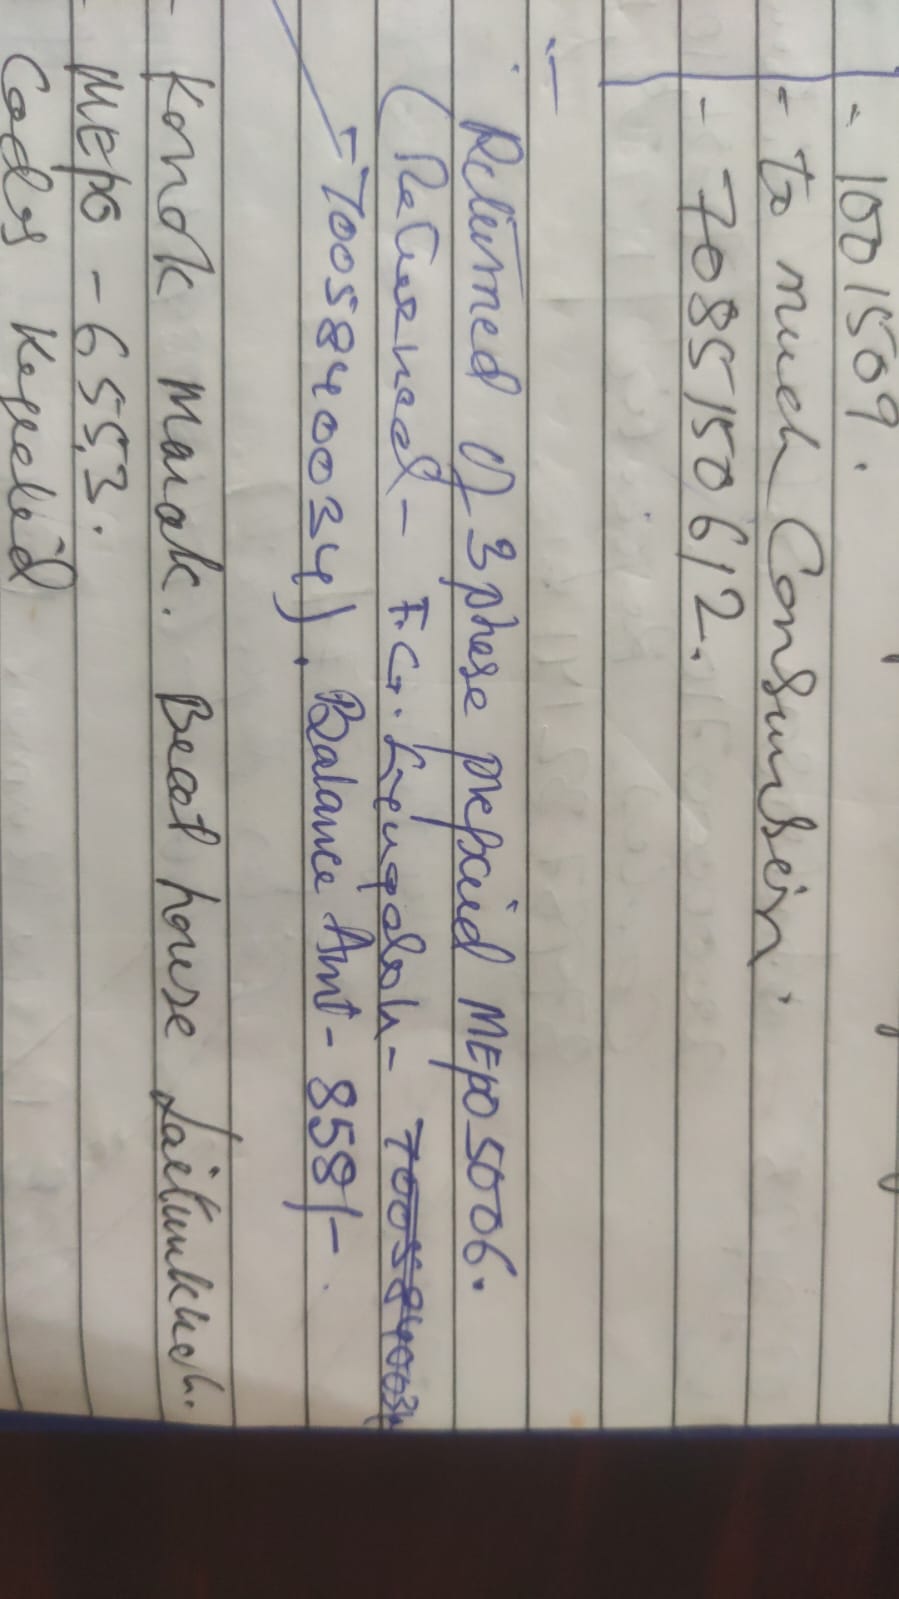 - 1001509.
- to much Consumsein.
- 7085150612.
Returned of 3 phese prepaid MEPO5006.
(Returned - F.G. - 7005840034
- 7005840034). Balance Amt - 858/-.
- Konok Marak. Beat house Laitumkhrah.
- MEPO - 6553.
Codes